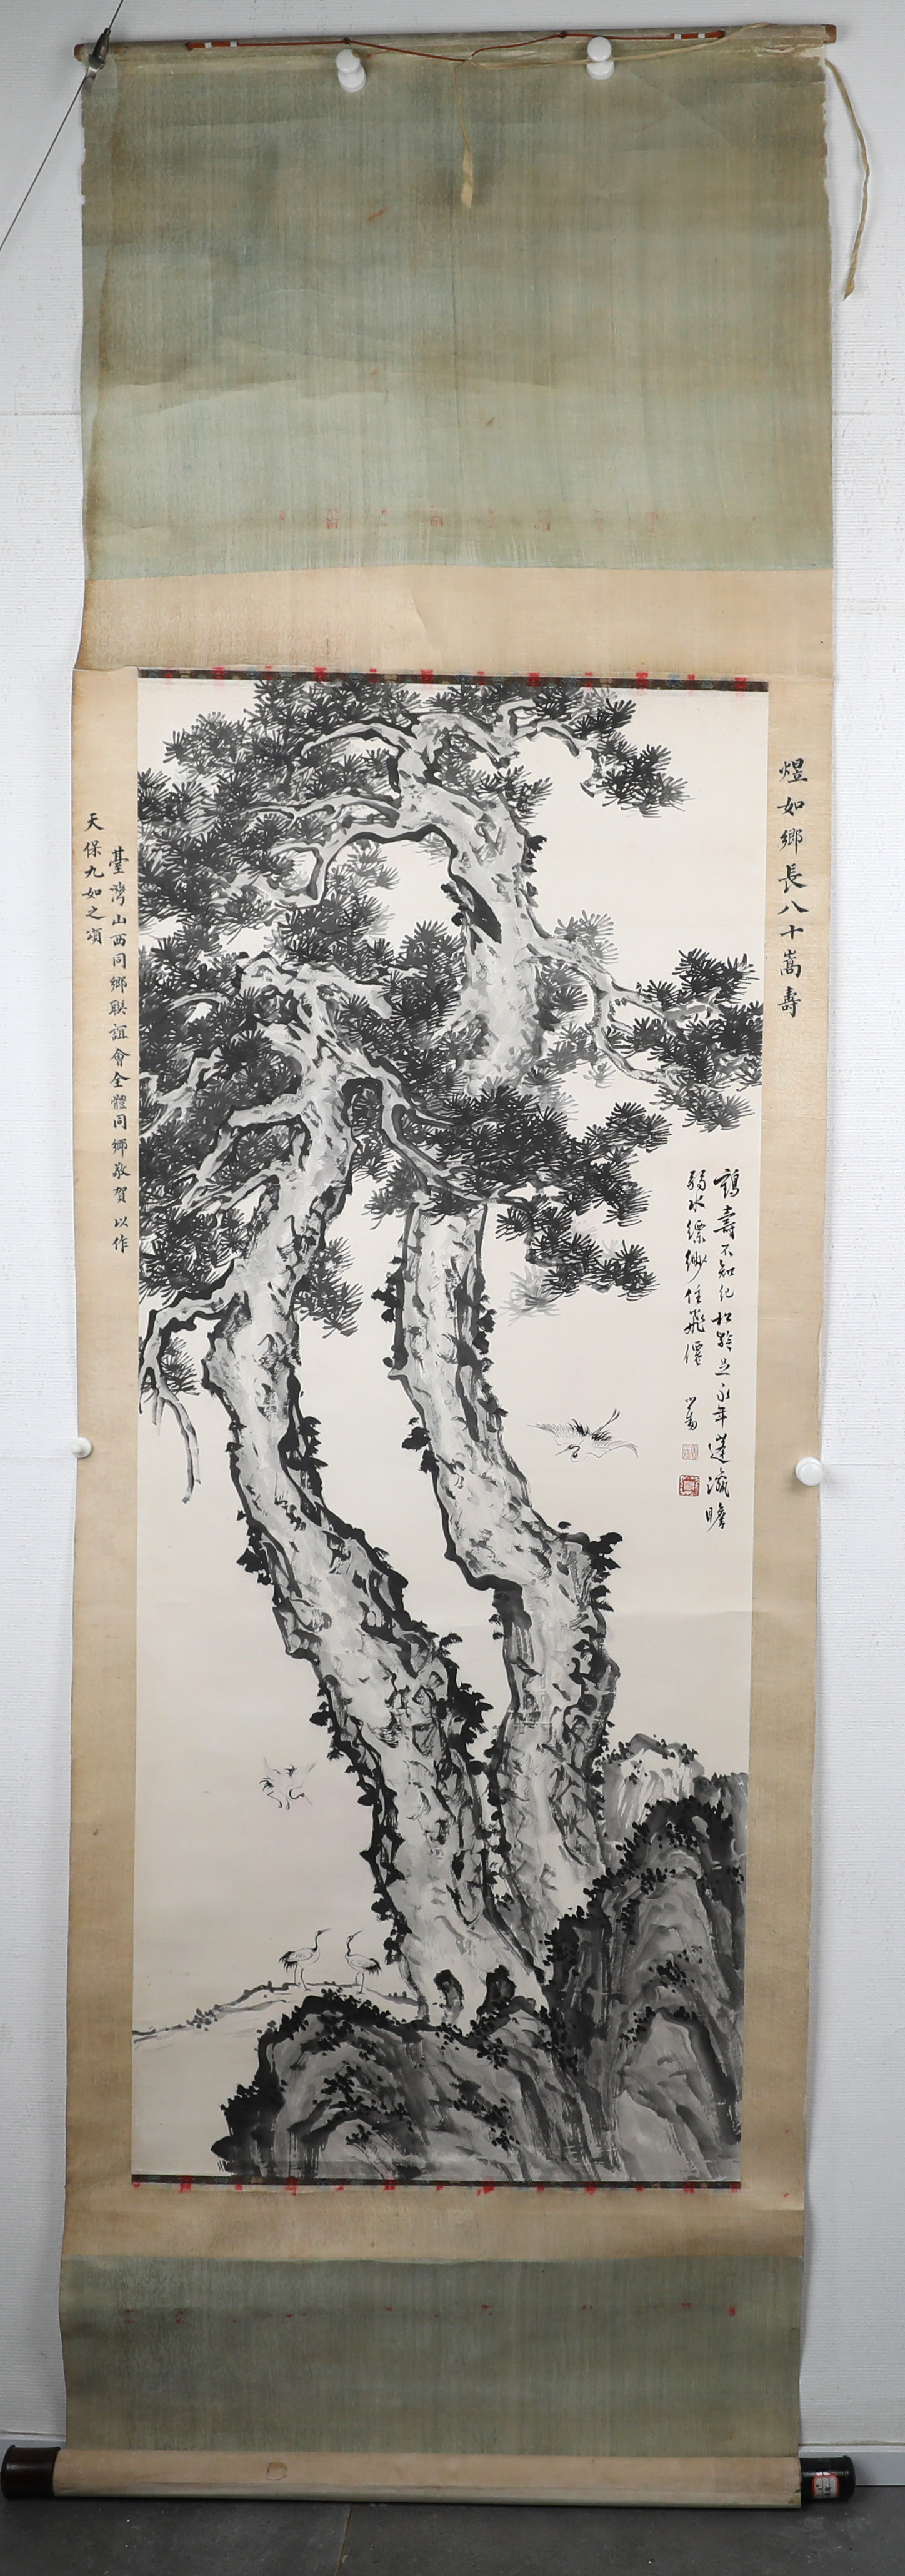 煜如鄉長八十嵩壽
鶴壽不知紀松齡足永年蓬瀛瞻
弱水縹緲任飛僊
臺灣山西同鄉聯誼會全體同鄉敬賀 以作
天保九如之頌